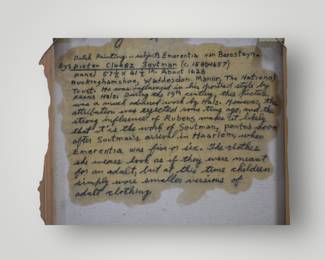 Dutch Painting - subject: Emerentia van Beresteyn
By: Pieter Claesz Soutman (c. 1580-1657)
panel 57½ x 41½ in. About 1628
Buckinghamshire, Waddesdon Manor, The National
Trust. He was influenced in his portrait style by
Frans Hals. During the 19th century, this picture
was a much admired work by Hals. However, the
attribution was rejected some time ago, and the
strong influence of Rubens makes it likely
that it is the work of Soutman, painted soon
after Soutman's arrival in Haarlem when
Emerentia was five or six. The clothes
she wears look as if they were meant
for an adult, but at this time children
simply wore smaller versions of
adult clothing